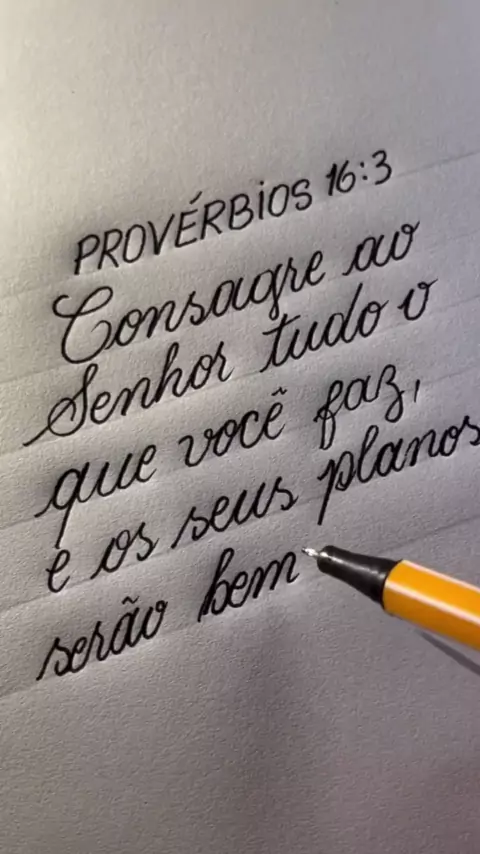 PROVÉRBIOS 16:3
Consagre ao
Senhor tudo o
que você faz,
e os seus planos
serão bem